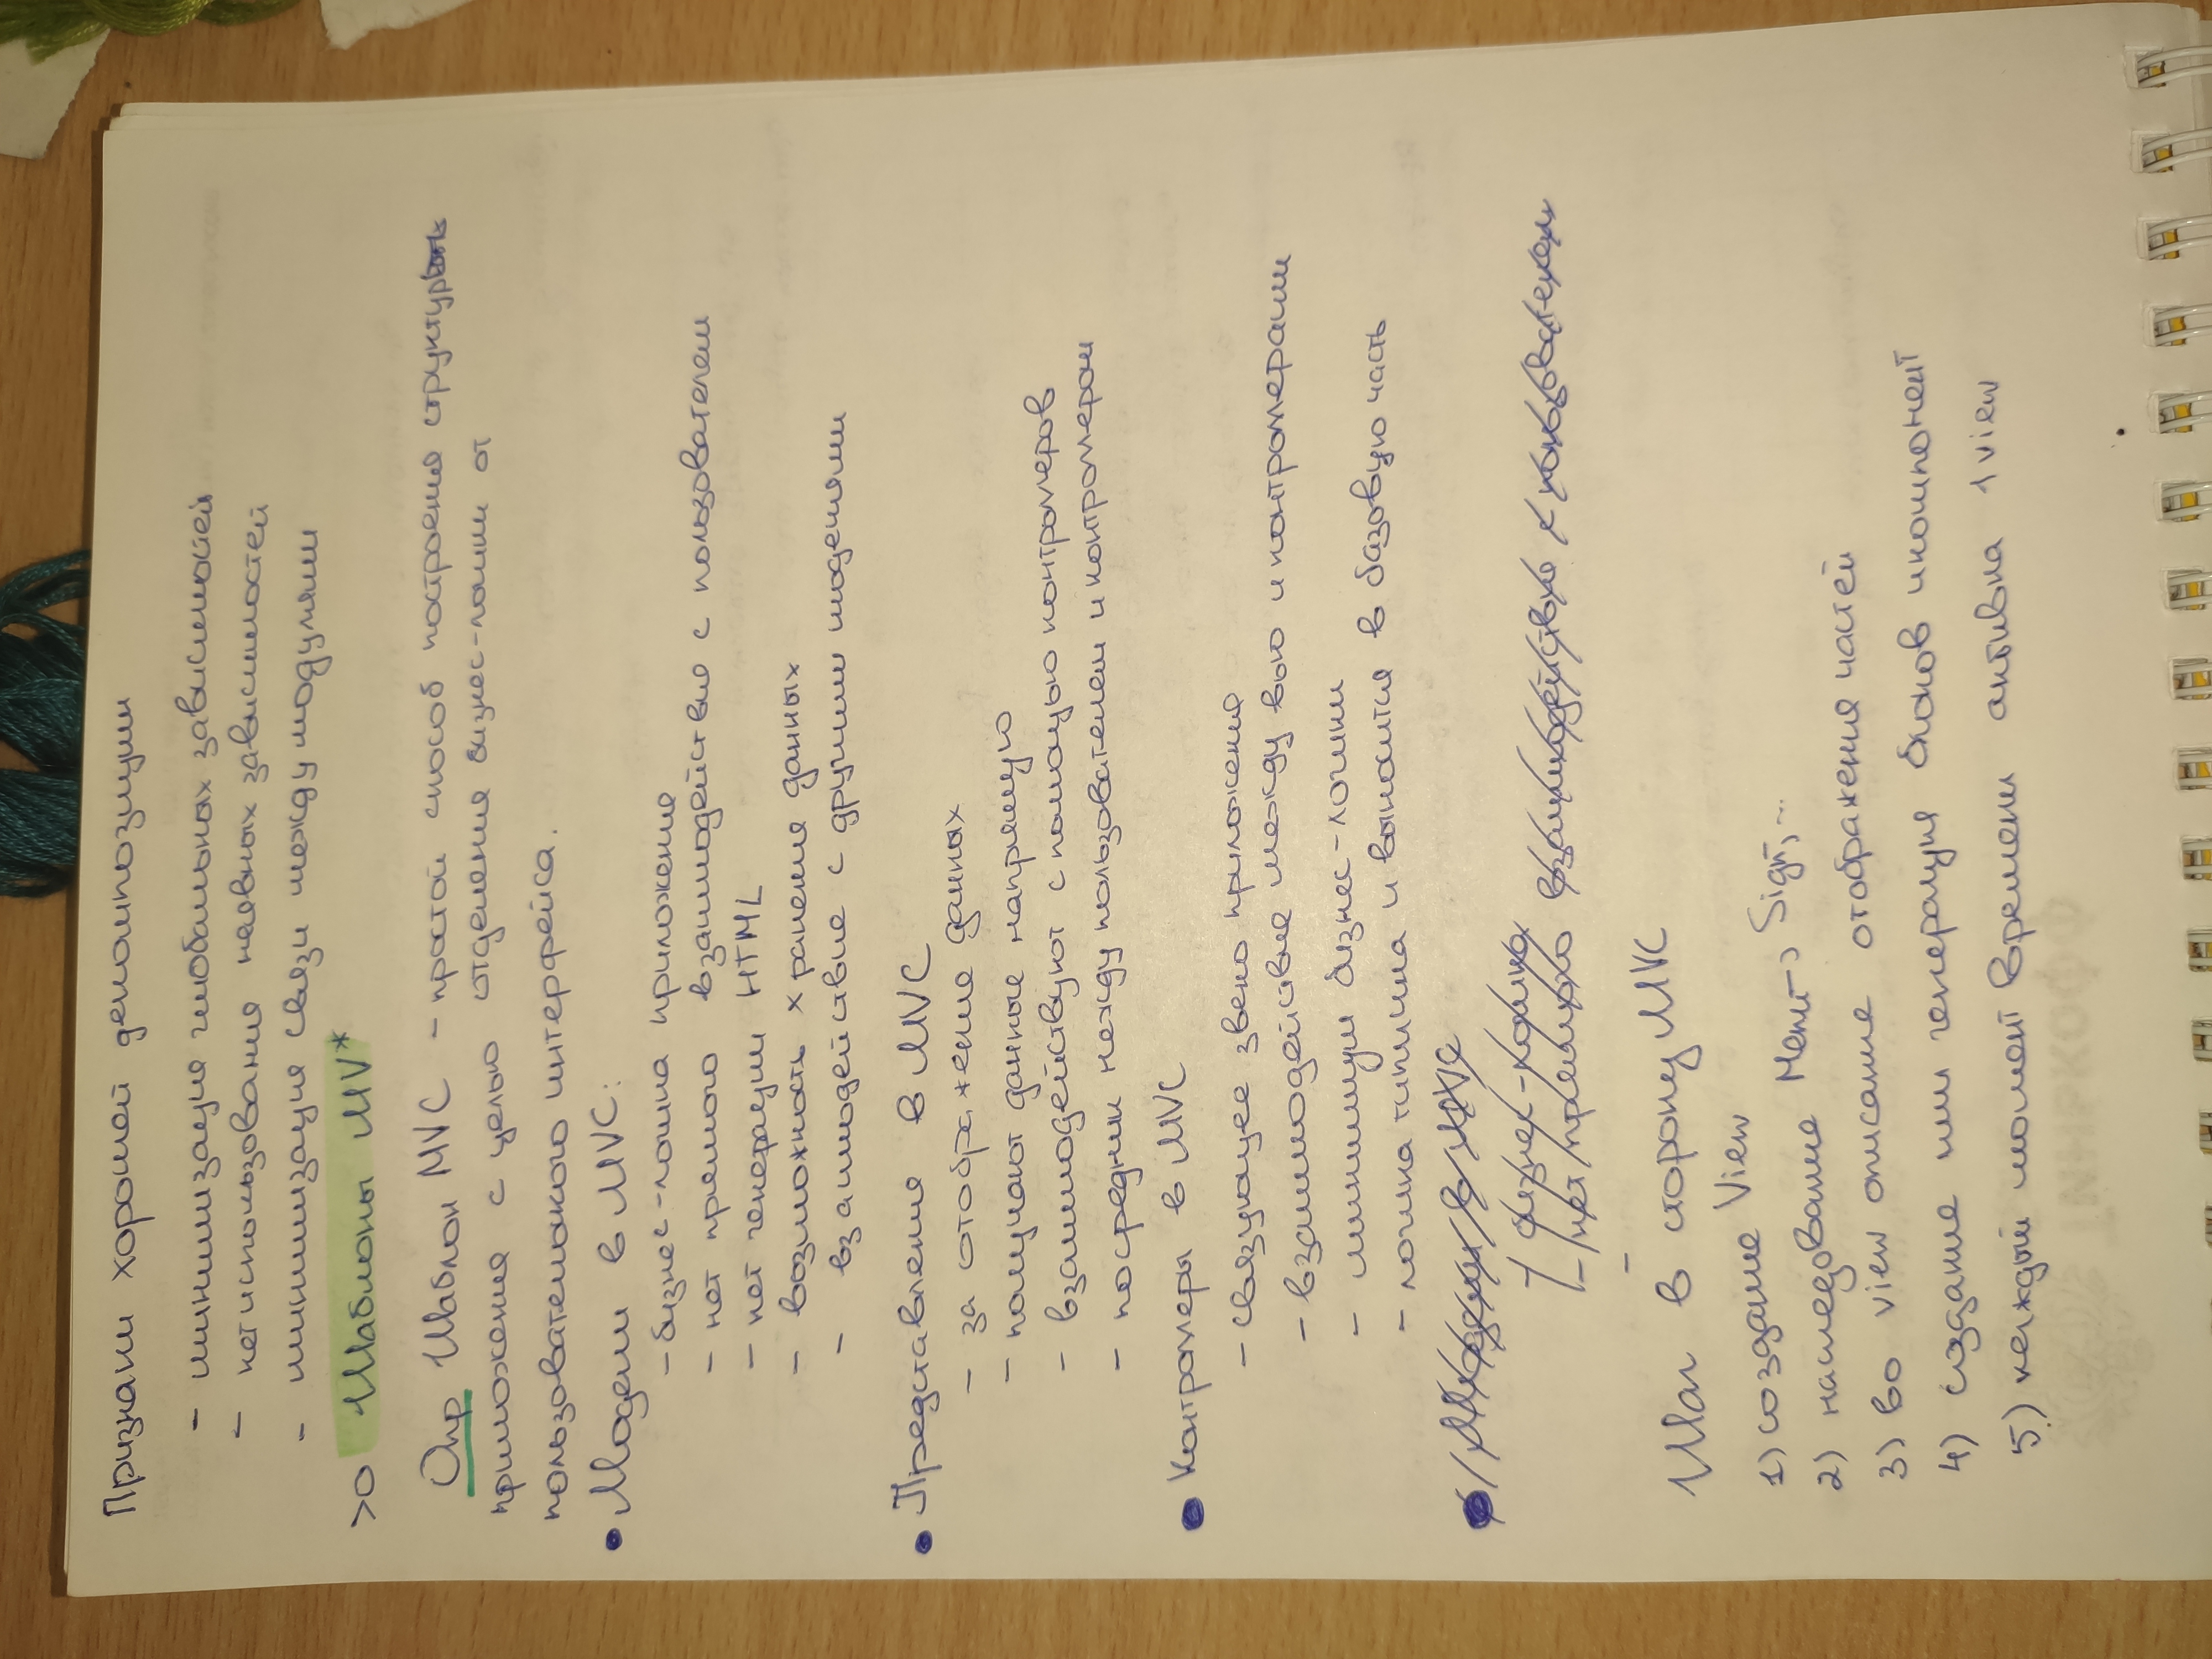 Признаки хорошей декомпозиции
- минимизация глобальных зависимостей
- нет использования неявных зависимостей
- минимизация связи между модулями
>0 Шаблоны MV*
Опр Шаблон MVC - простой способ построения структуры
приложения с целью отделения бизнес-логики от
пользовательского интерфейса.
• Модели в MVC:
- бизнес-логика приложения
- нет прямого взаимодействия с пользователем
- нет генерации HTML
- возможность хранения данных
- взаимодействие с другими моделями
• Представления в MVC
- за отображение данных
- получают данные напрямую
- взаимодействуют с помощью контроллеров
- посредник между пользователем и контроллером
• Контроллеры в MVC
- связующее звено приложения
- взаимодействие между вью и контроллерами
- минимум бизнес-логики
- логика типична и выносится в базовую часть
• Модели в MVC
- бизнес-логика
- нет прямого взаимодействия с пользователем
-
Шаг в сторону MVC
1) создание View
2) наследование Menu-, Sign-, ...
3) во view описание отображения частей
4) создание или генерация блоков и компонент
5) каждый момент времени активна 1 view
ТИНЬКОФФ